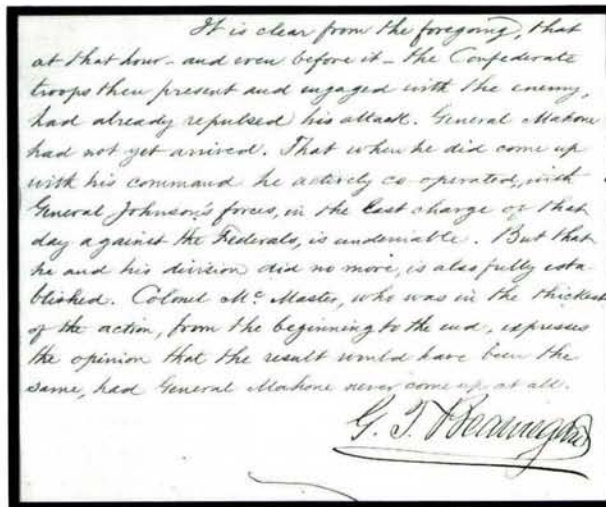 It is clear from the foregoing, that
at that hour - and even before it - the Confederate
troops then present and engaged with the enemy,
had already repulsed his attack. General Mahone
had not yet arrived. That when he did come up
with his command he actively co-operated, with
General Johnson's forces, in the last charge of that
day against the Federals, is undeniable. But that
he and his division did no more, is also fully esta-
blished. Colonel Mc. Master, who was in the thickest
of the action, from the beginning to the end, expresses
the opinion that the result would have been the
same, had General Mahone never come up at all.
G. T. Beauregard